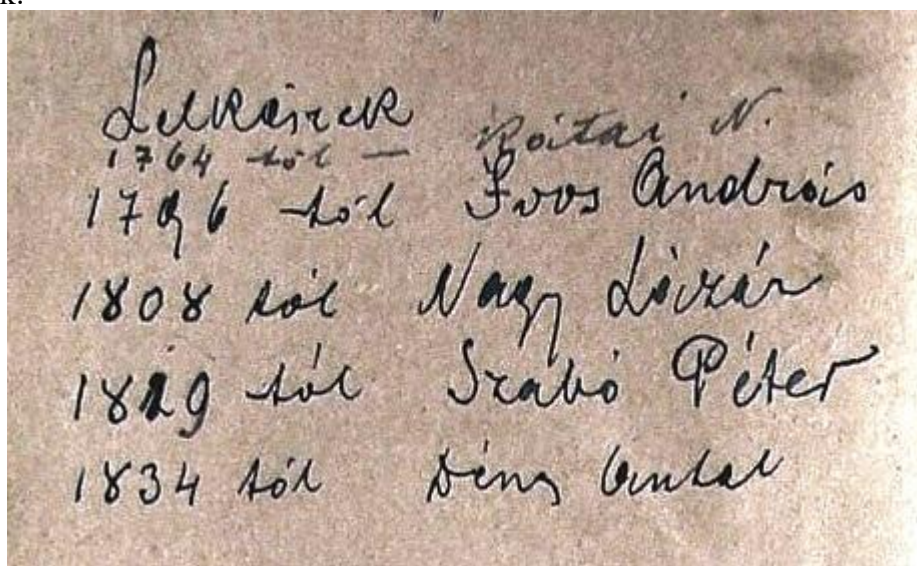 Lelkészek
1764 tól — Rátai N.
1796 tól Soos András
1808 tól Nagy Lázár
tól Szabó Péter
1834 tól Dénes Antal